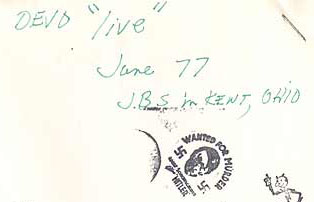 DEVO "live"
June 77
J.B.S in KENT, OHIO
WANTED FOR MURDER
HITLER